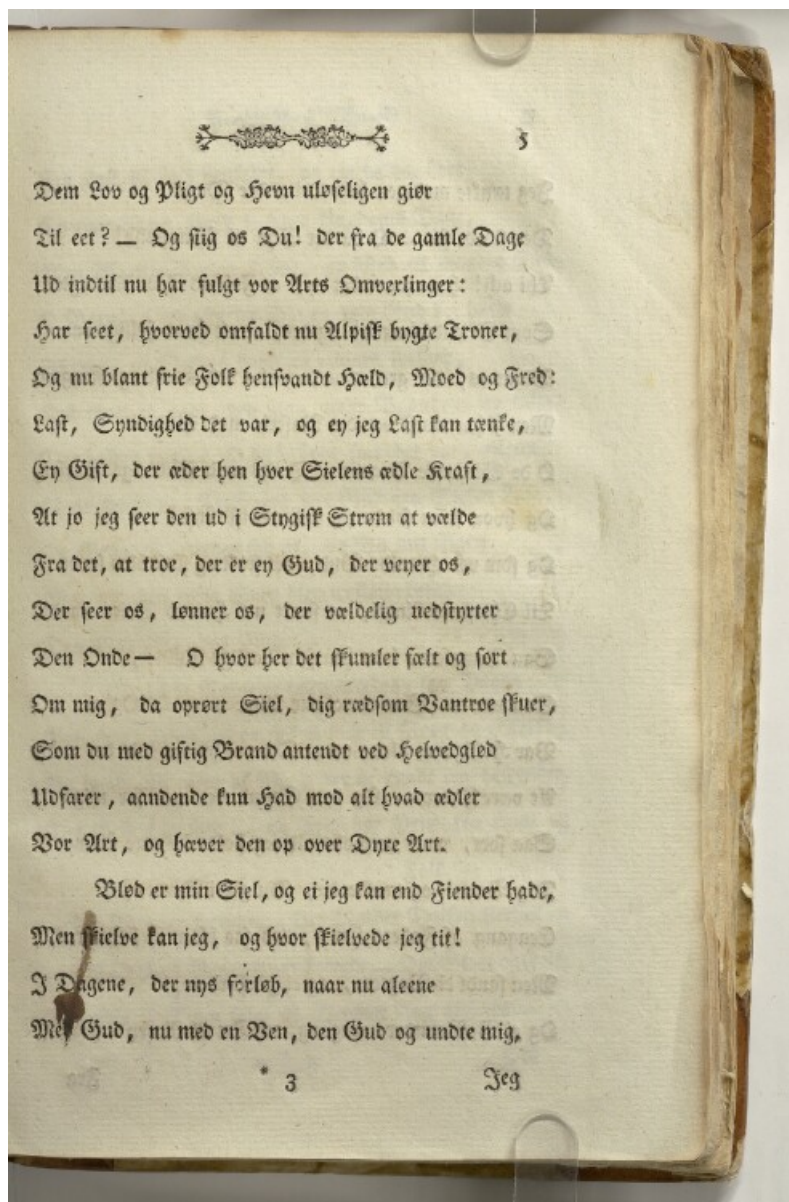 5
Dem Lov og Pligt og Hevn uløseligen giør
Til eet? — Og siig os Du! der fra de gamle Dage
Ud indtil nu har fulgt vor Arts Omvexlinger:
Har seet, hvorved omfaldt nu Alpisk bygte Troner,
Og nu blant frie Folk hensvandt Hæld, Moed og Fred:
Last, Syndighed det var, og ey jeg Last kan tænke,
Ey Gift, der æder hen hver Sielens ædle Kraft,
At jo jeg seer den ud i Stygisk Strøm at vælde
Fra det, at troe, der er ey Gud, der veyer os,
Der seer os, lønner os, der vældelig nedstyrter
Den Onde — O hvor her det skumler fælt og sort
Om mig, da oprørt Siel, dig rædsom Vantroe skuer,
Som du med giftig Brand antendt ved Helvedglød
Udfarer, aandende kun Had mod alt hvad ædler
Vor Art, og hæver den op over Dyre Art.
Blød er min Siel, og ei jeg kan end Fiender hade,
Men skielve kan jeg, og hvor skielvede jeg tit!
I Dagene, der nys forløb, naar nu aleene
Med Gud, nu med en Ven, den Gud og undte mig,
* 3 Jeg